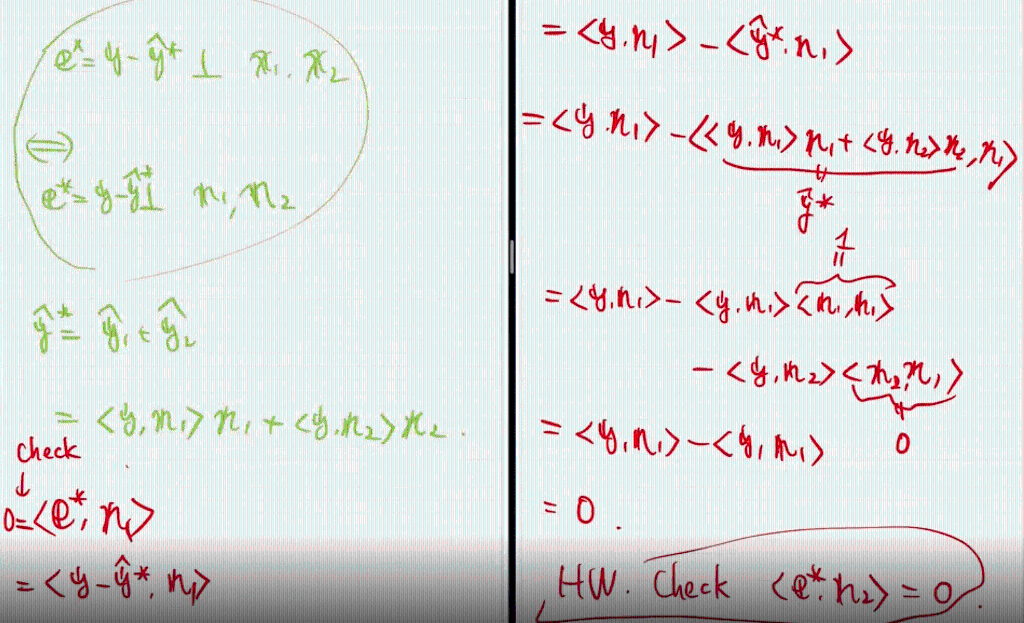 e* = y - ŷ* ⊥ x₁, x₂
⟺
e* = y - ŷ* ⊥ n₁, n₂
ŷ* = ŷ₁ + ŷ₂
= <y, n₁> n₁ + <y, n₂> n₂.
check
↓
0 = <e*, n₁>
= <y - ŷ*, n₁>
= <y, n₁> - <ŷ*, n₁>
= <y, n₁> - <<y, n₁> n₁ + <y, n₂> n₂, n₁>
ŷ*
1
= <y, n₁> - <y, n₁> <n₁, n₁>
- <y, n₂> <n₂, n₁>
0
= <y, n₁> - <y, n₁>
= 0.
HW. Check <e*, n₂> = 0.